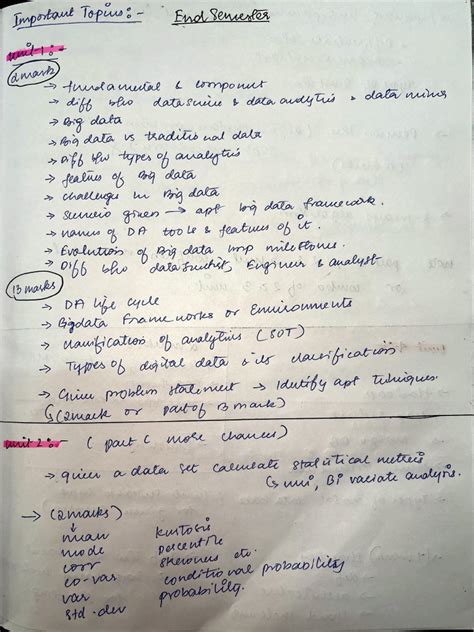 Important Topics :- End Semester
Unit 1 :-
(2 mark)
→ fundamental & component
→ diff b/w data science & data analytics & data mining
→ Big data
→ Big data vs traditional data
→ Diff b/w types of analytics
→ features of Big data
→ challenges in Big data
→ Scenario given → apt big data framework.
→ names of DA tools & features of it.
→ Evolution of Big data imp milestones.
→ Diff b/w data scientist, Engineer & analyst
(13 marks)
→ DA life cycle
→ Bigdata Frameworks or Environments
→ classification of analytics (SOT)
→ Types of digital data & its classification
→ Given problem statement → Identify apt techniques
↳ (2mark or part of 13 mark)
Unit 2 :- ( part C more chances)
→ given a data set calculate statistical metrics
↳ uni, Bi variate analysis.
→ (2marks)
↓
mean kurtosis
mode percentile
corr skewness etc.
co-var conditional probability
var probability.
std. dev